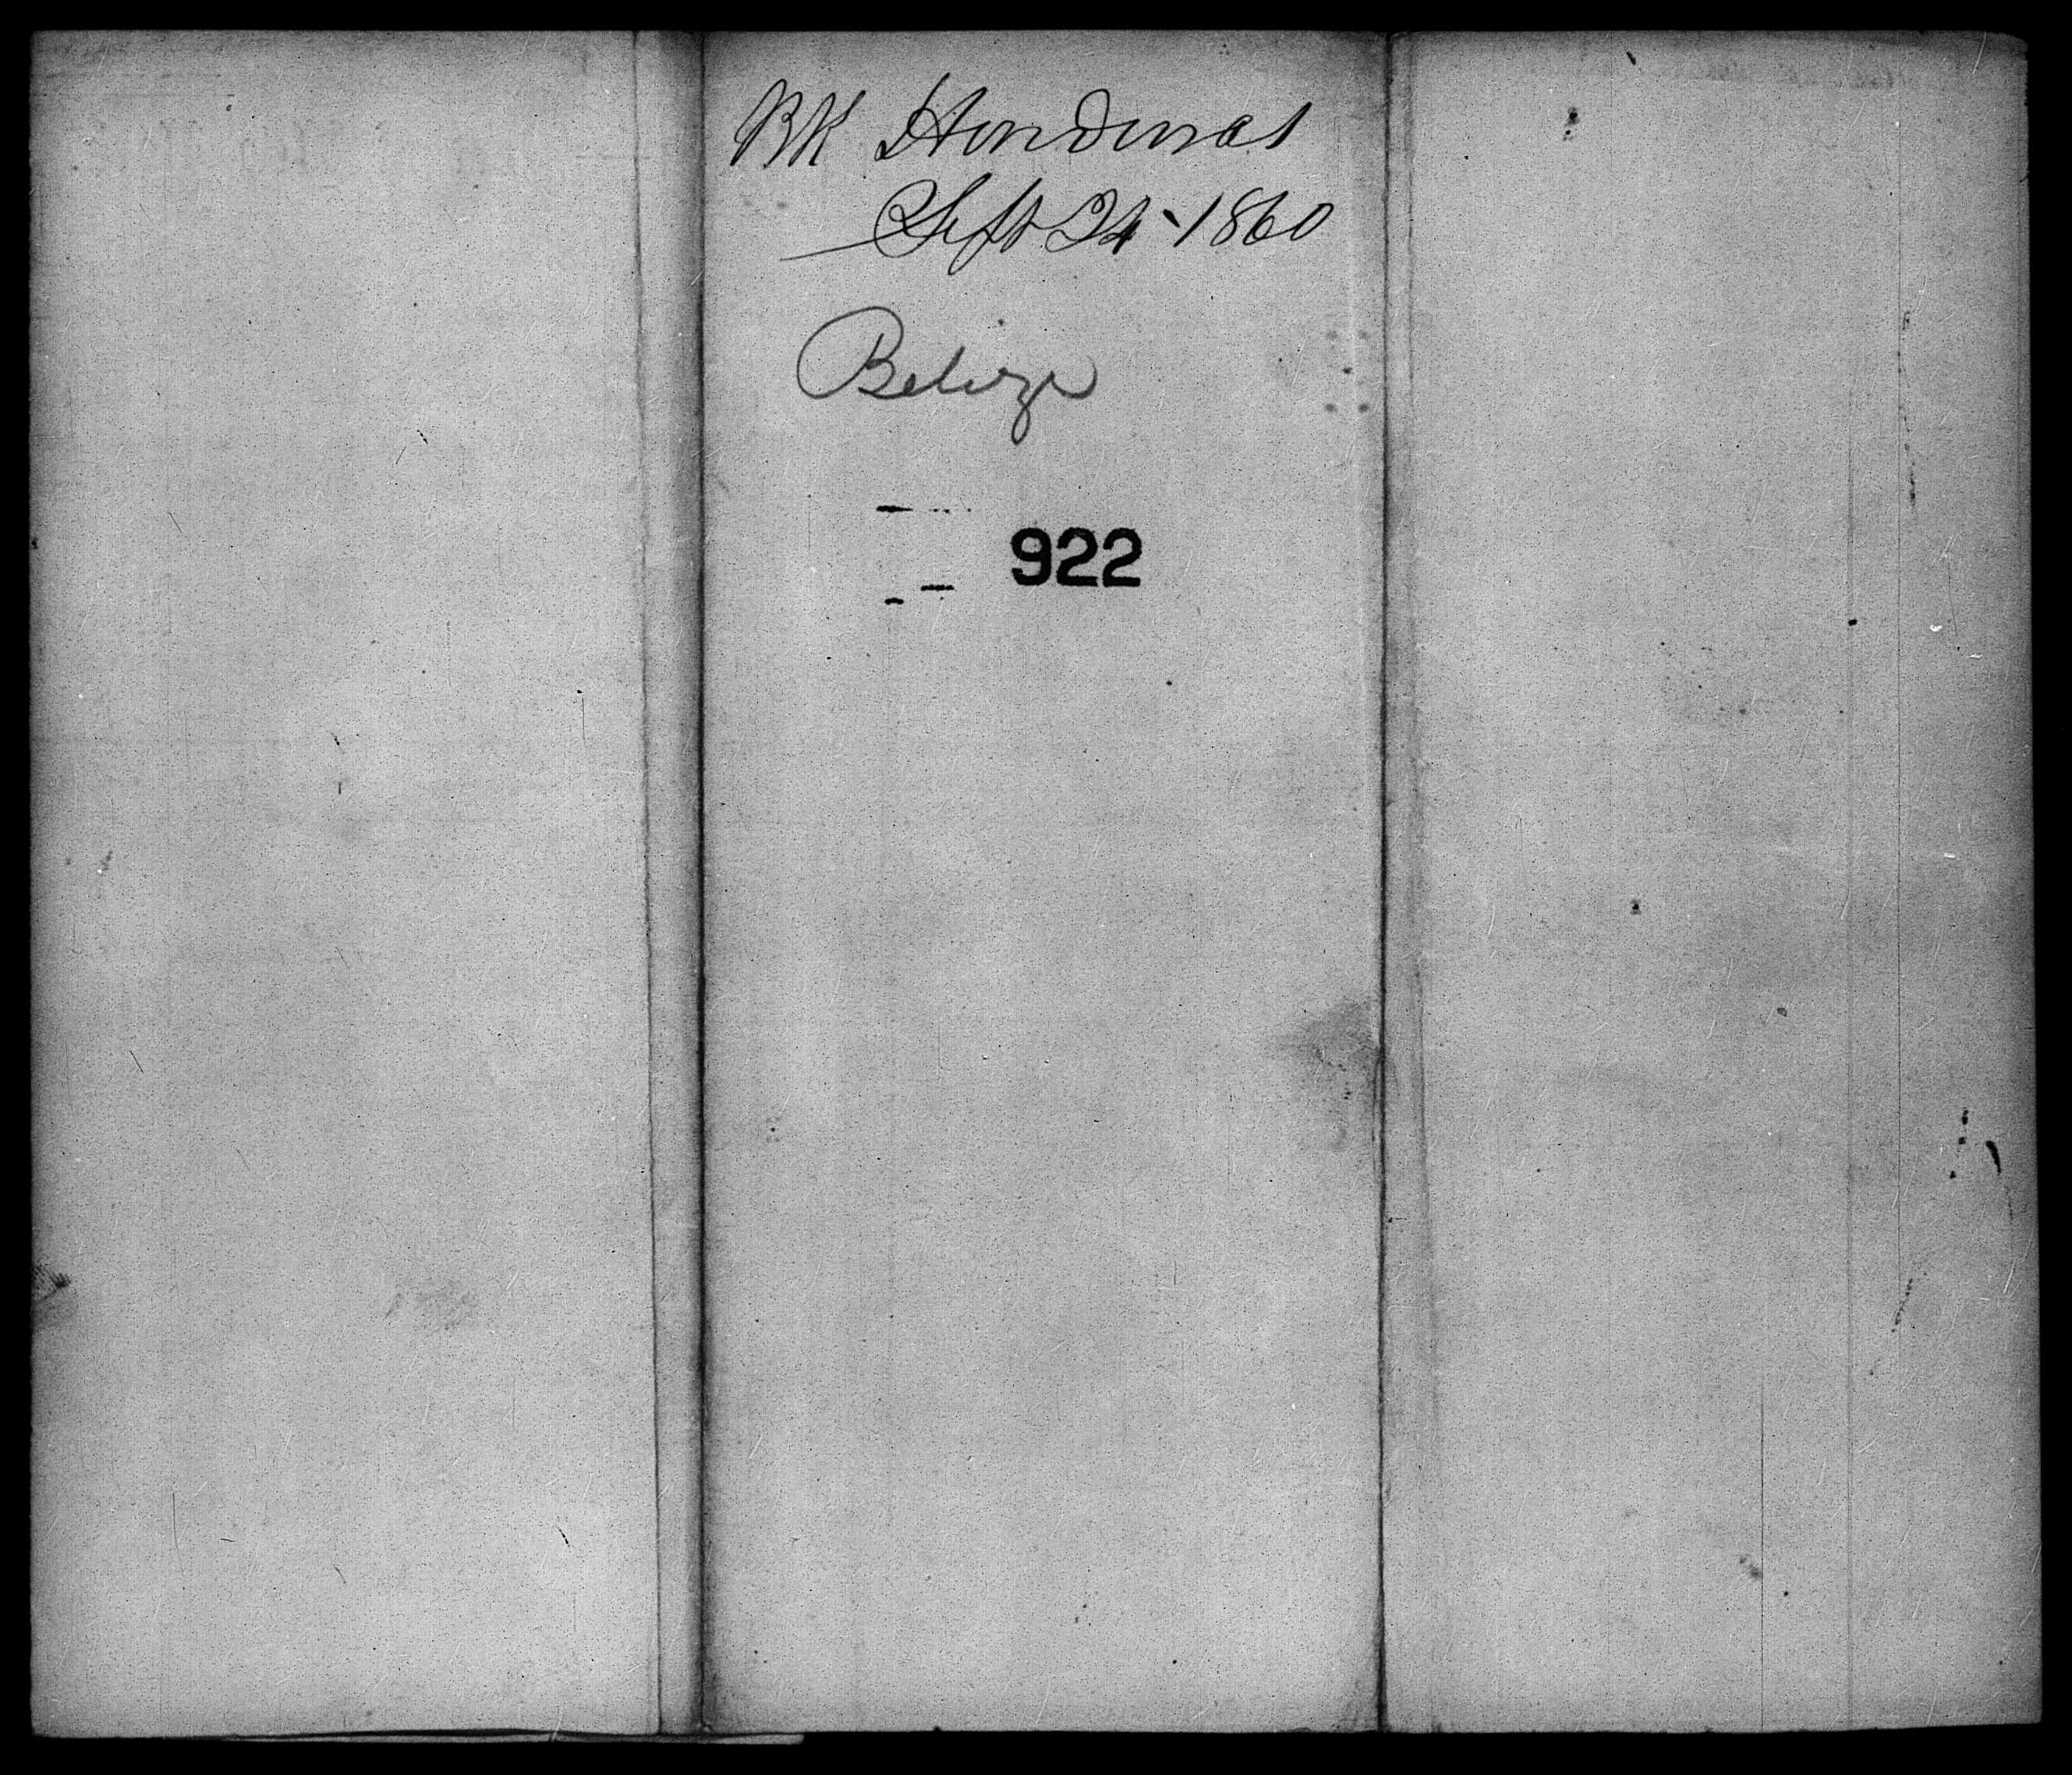 BK Honduras
Sept 24-1860
Belize
922